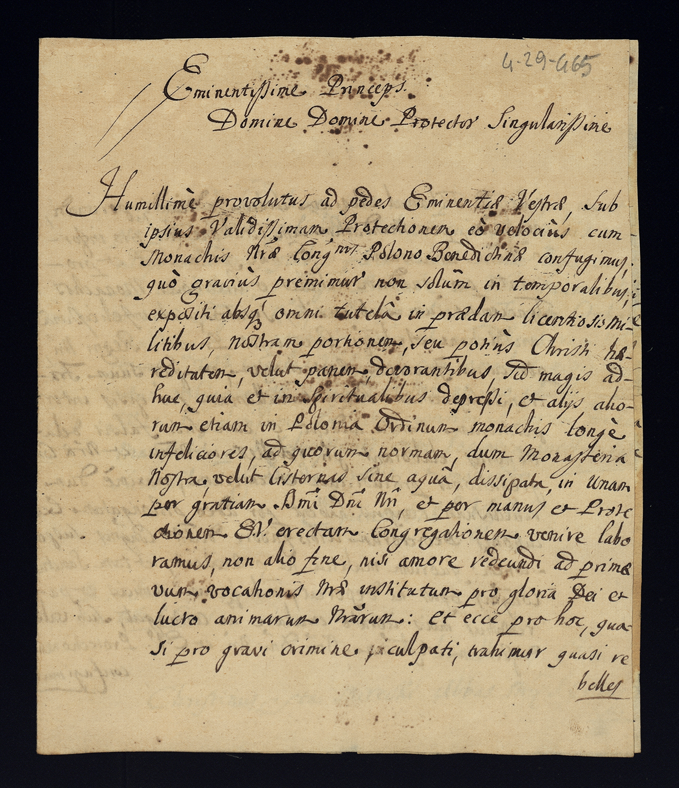 4-29-465
Eminentissime Princeps.
Domine Domine Protector Singularissime
Humillimè provolutus ad pedes Eminentiæ Vestræ, sub
ipsius Validissimam Protectionem eò velociùs cum
Monachis Nræ Congnis Polono Benedictinæ confugimus,
quò graviùs premimur non solùm in temporalibus,
expositi absq; omni tutelâ in prædam licentiosis mi
litibus, nostram portionem, seu potiùs Christi hæ-
reditatem, velut panem, devorantibus, sed magis ad-
huc, quia et in spiritualibus depressi, et alijs alio-
rum etiam in Polonia Ordinum monachis longè
infeliciores, ad quorum normam, dum Monasteria
Nostra, velut Cisternas sine aquâ, dissipata, in Unam
per gratiam Bmi Dni Nri, et per manus et Prote
ctionem E.V. erectam Congregationem venire labo
ramus, non alio fine, nisi amore redeundi ad primæ
vum vocationis Nræ institutum pro gloria Dei et
lucro animarum Nrarum: et ecce pro hoc, qua-
si pro gravi crimine inculpati, trahimur quasi re
belles